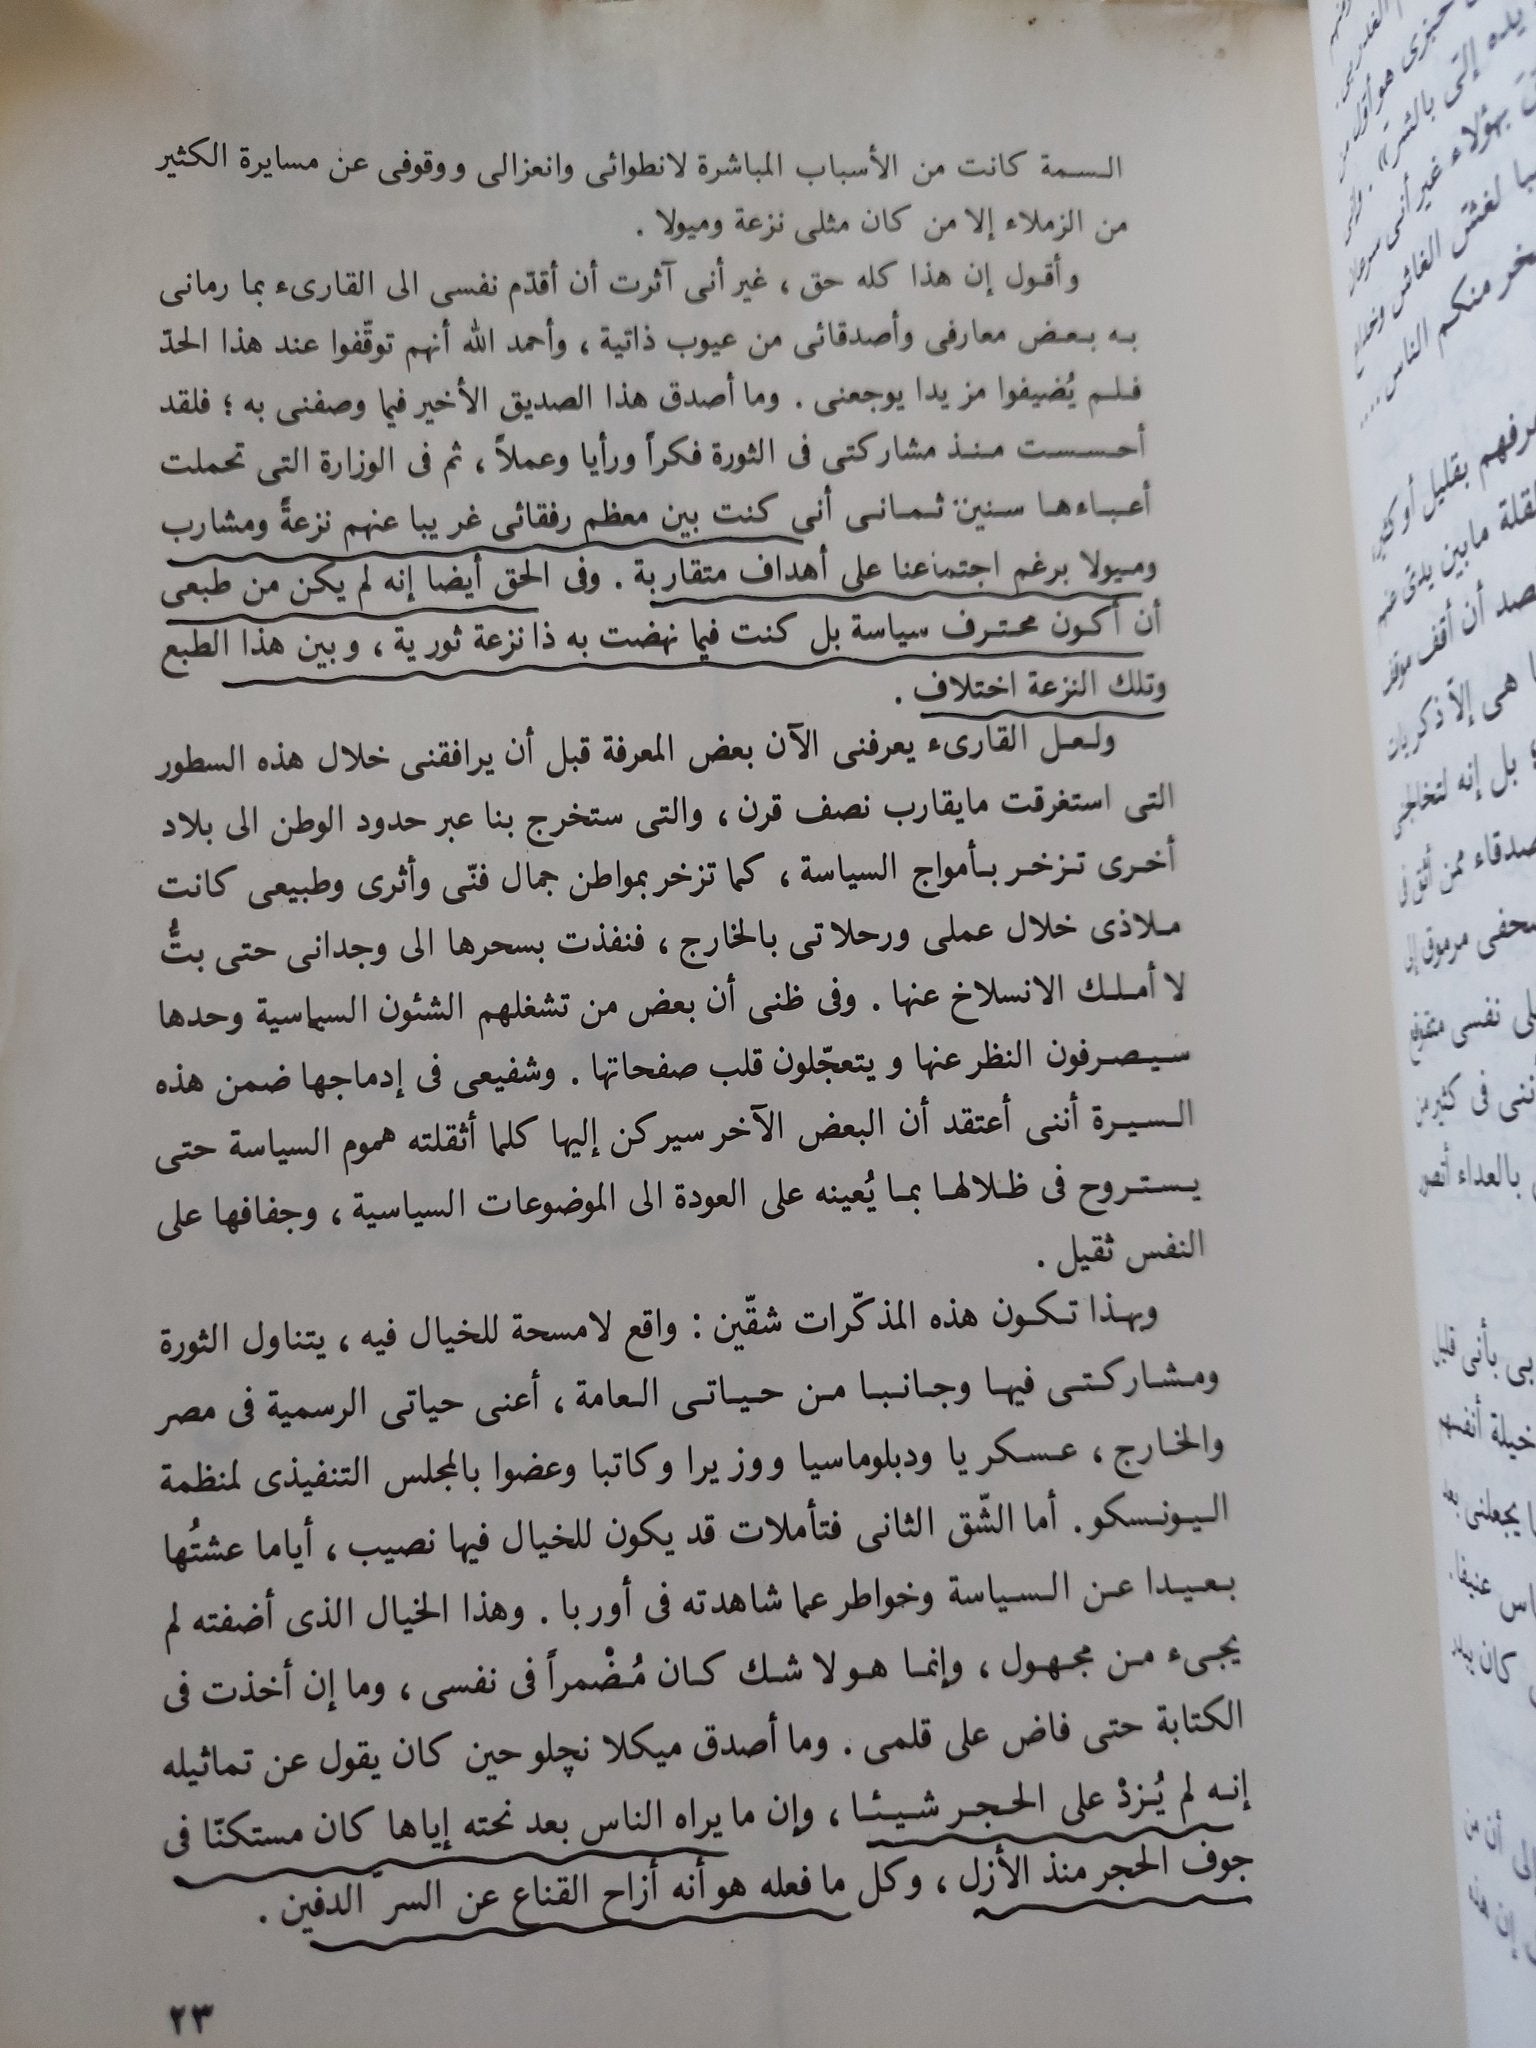 السمة كانت من الأسباب المباشرة لانطوائى وانعزالى ووقوفى عن مسايرة الكثير
من الزملاء إلا من كان مثلى نزعة وميولا .
وأقول إن هذا كله حق ، غير أنى آثرت أن أقدّم نفسى الى القارىء بما رمانى
به بعض معارفى وأصدقائى من عيوب ذاتية ، وأحمد الله أنهم توقّفوا عند هذا الحدّ
فلم يُضيفوا مزيدا يوجعنى . وما أصدق هذا الصديق الأخير فيما وصفنى به ؛ فلقد
أحسست منذ مشاركتى فى الثورة فكراً ورأيا وعملاً ، ثم فى الوزارة التى تحملت
أعباءها سنين ثمانى أنى كنت بين معظم رفقائى غريبا عنهم نزعةً ومشارب
وميولا برغم اجتماعنا على أهداف متقاربة . وفى الحق أيضا إنه لم يكن من طبعى
أن أكون محترف سياسة بل كنت فيما نهضت به ذا نزعة ثورية ، وبين هذا الطبع
وتلك النزعة اختلاف .
ولعل القارىء يعرفنى الآن بعض المعرفة قبل أن يرافقنى خلال هذه السطور
التى استغرقت مايقارب نصف قرن ، والتى ستخرج بنا عبر حدود الوطن الى بلاد
أخرى تزخر بأمواج السياسة ، كما تزخر بمواطن جمال فنّى وأثرى وطبيعى كانت
ملاذى خلال عملى ورحلاتى بالخارج ، فنفذت بسحرها الى وجدانى حتى بتُّ
لا أملك الانسلاخ عنها . وفى ظنى أن بعض من تشغلهم الشئون السياسية وحدها
سيصرفون النظر عنها ويتعجّلون قلب صفحاتها . وشفيعى فى إدماجها ضمن هذه
السيرة أننى أعتقد أن البعض الآخر سيركن إليها كلما أثقلته هموم السياسة حتى
يستروح فى ظلالها بما يُعينه على العودة الى الموضوعات السياسية ، وجفافها على
النفس ثقيل .
وبهذا تكون هذه المذكّرات شقّين : واقع لامسحة للخيال فيه ، يتناول الثورة
ومشاركتى فيها وجانبا من حياتى العامة ، أعنى حياتى الرسمية فى مصر
والخارج ، عسكريا ودبلوماسيا ووزيرا وكاتبا وعضوا بالمجلس التنفيذى لمنظمة
اليونسكو . أما الشّق الثانى فتأملات قد يكون للخيال فيها نصيب ، أياما عشتُها
بعيدا عن السياسة وخواطر عما شاهدته فى أوربا . وهذا الخيال الذى أضفته لم
يجىء من مجهول ، وإنما هو لا شك كان مُضْمراً فى نفسى ، وما إن أخذت فى
الكتابة حتى فاض على قلمى . وما أصدق ميكلا نچلو حين كان يقول عن تماثيله
إنه لم يُزدْ على الحجر شيئا ، وإن ما يراه الناس بعد نحته إياها كان مستكنّا فى
جوف الحجر منذ الأزل ، وكل ما فعله هو أنه أزاح القناع عن السرّ الدفين .
٢٣